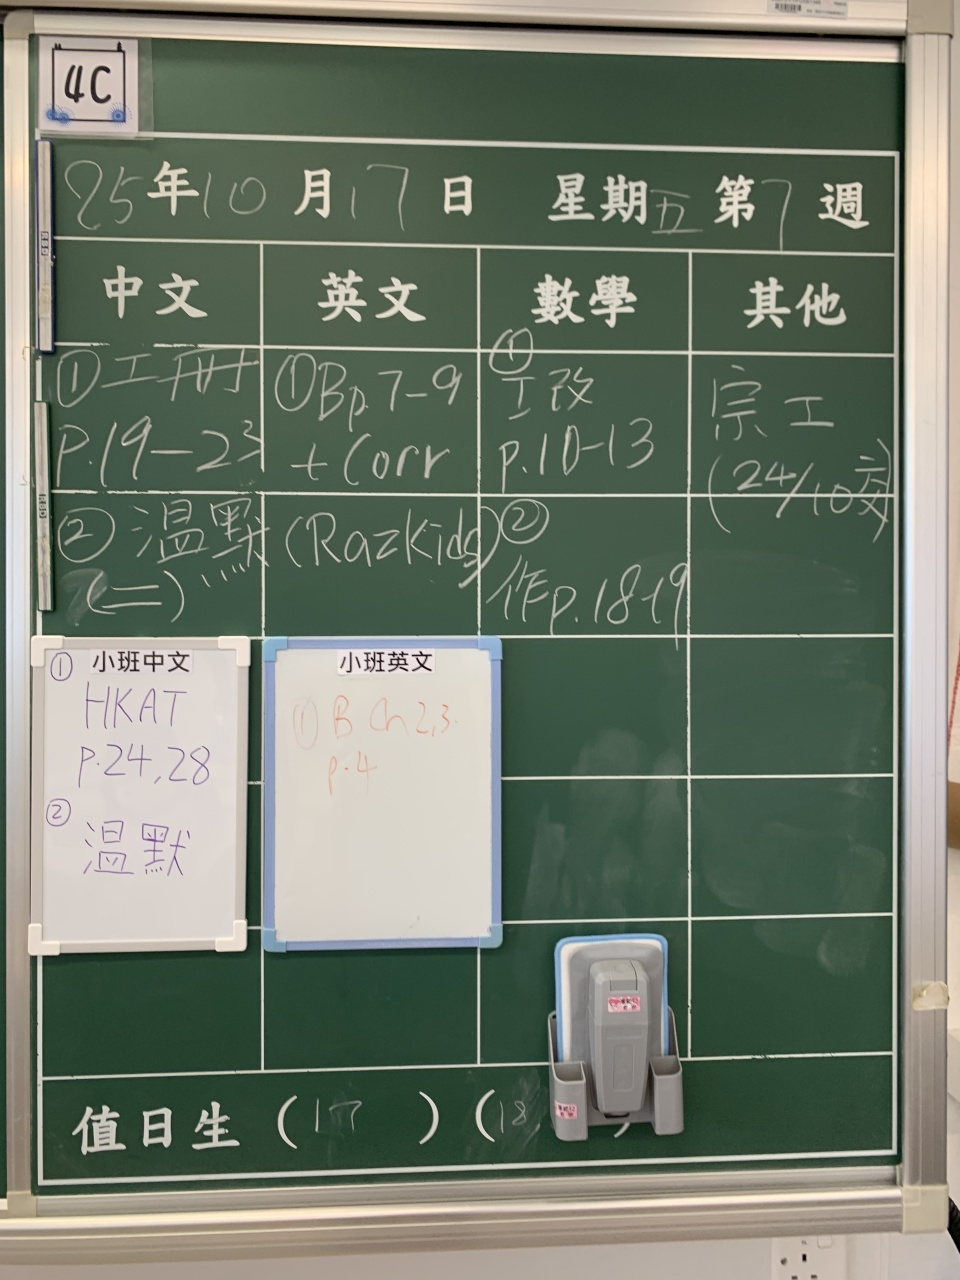 4C
25年10月17日 星期五 第7週
中文 英文 數學 其他
①工冊
P.19-23
②温默
(二)
①Bp.7-9
+Corr
(RazKids)
①
工改
p.10-13
②
作p.18-19
宗工
(24/10交)
小班中文
①
HKAT
p.24,28
②
温默
小班英文
①B Ch 2,3.
p.4
值日生 (17) (18)